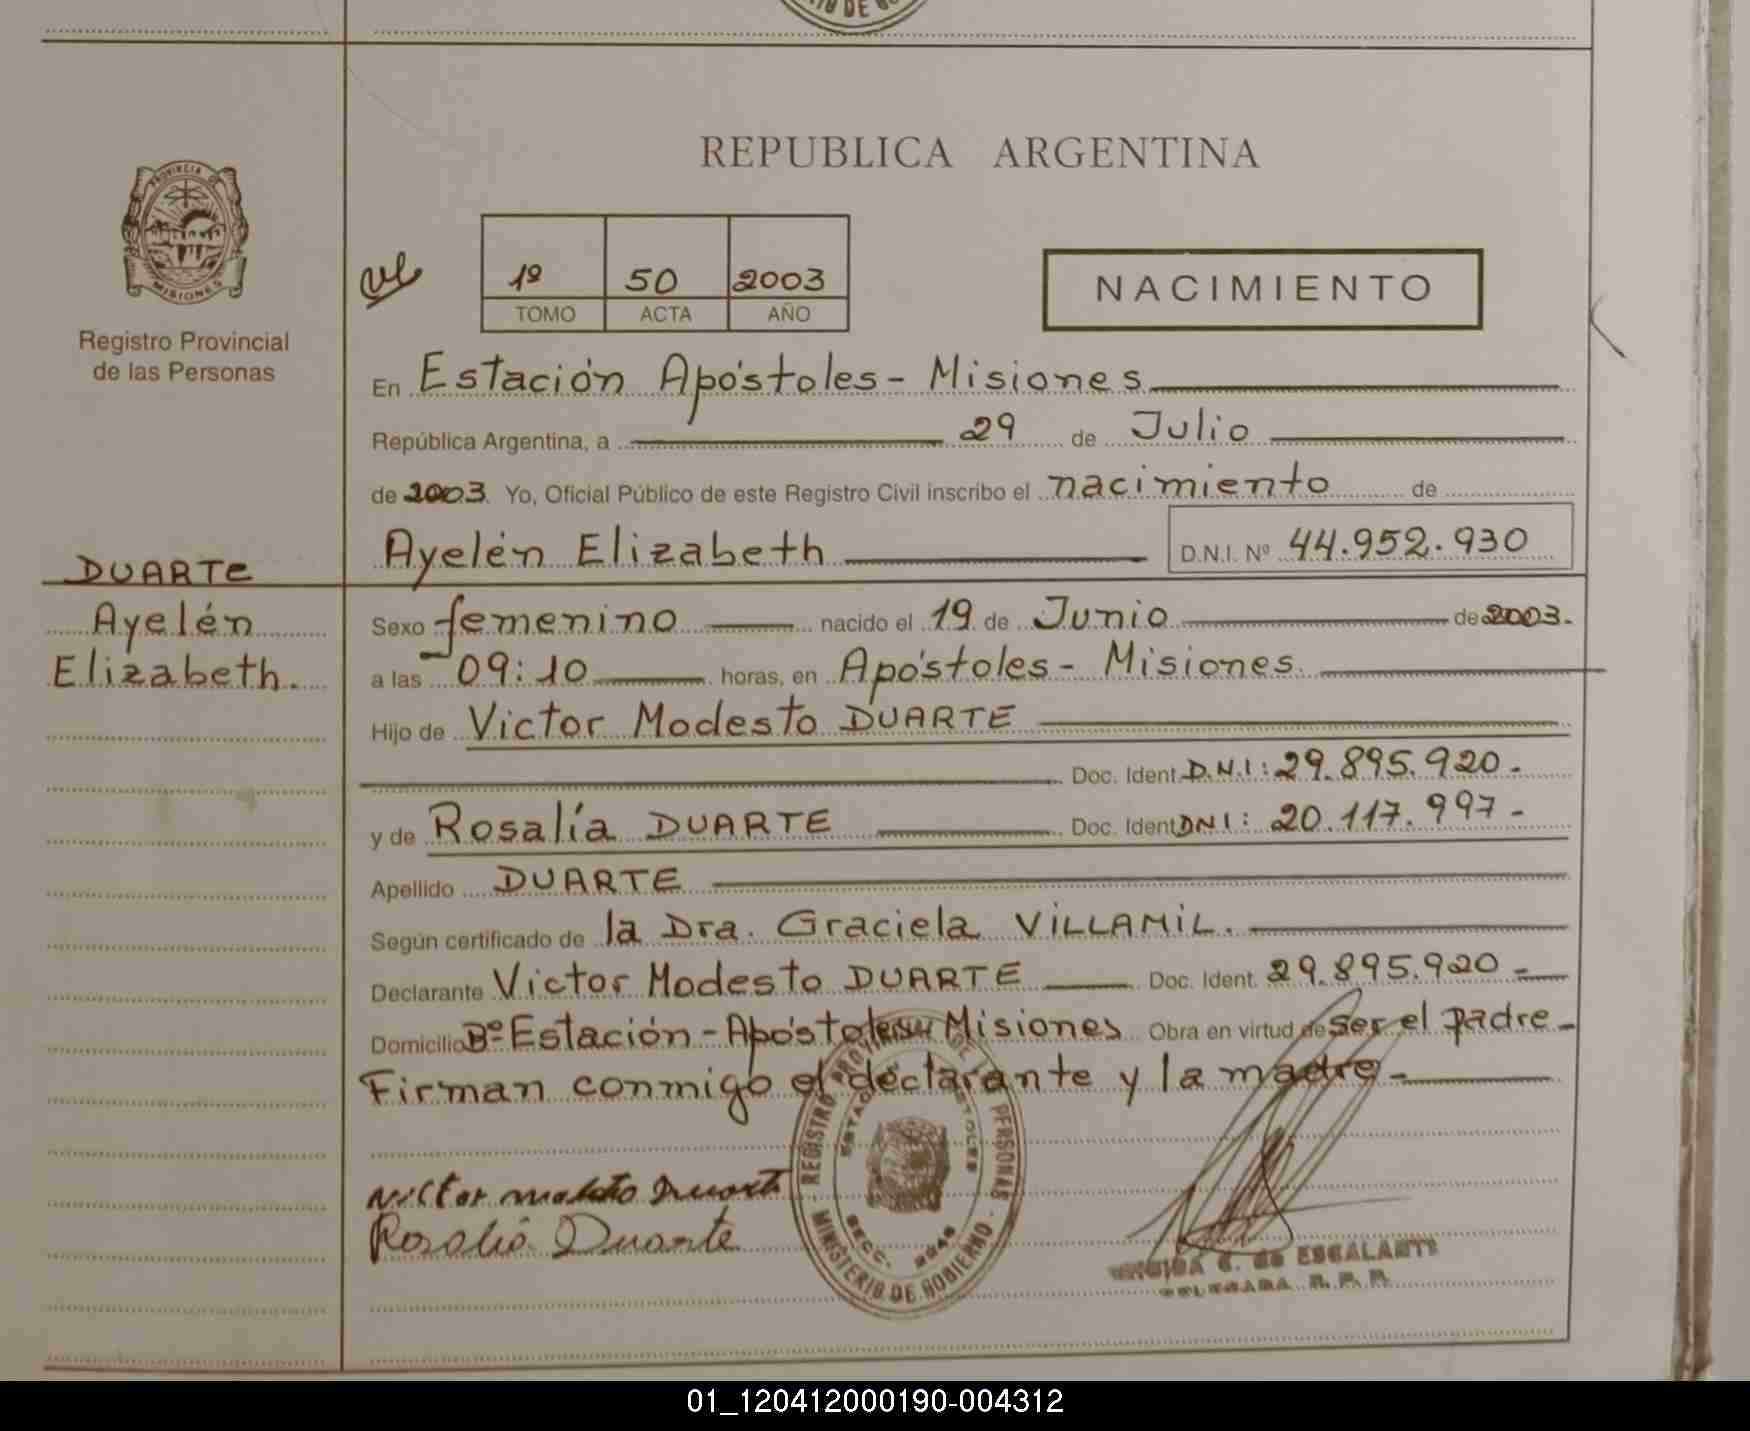 REPUBLICA ARGENTINA
PROVINCIA DE
MISIONES
Registro Provincial
de las Personas
1º 50 2003
TOMO ACTA AÑO
NACIMIENTO
En Estación Apóstoles - Misiones
República Argentina, a 29 de Julio
de 2003. Yo, Oficial Público de este Registro Civil inscribo el nacimiento de
Ayelén Elizabeth D.N.I. Nº 44.952.930
DUARTE
Ayelén
Elizabeth.
Sexo femenino nacido el 19 de Junio de 2003.
a las 09:10 horas, en Apóstoles - Misiones.
Hijo de Victor Modesto DUARTE
Doc. Ident. D.N.I: 29.895.920.-
y de Rosalía DUARTE Doc. Ident. DNI: 20.117.997-
Apellido DUARTE
Según certificado de la Dra. Graciela VILLAMIL.
Declarante Victor Modesto DUARTE Doc. Ident. 29.895.920-
Domicilio Bº Estación - Apóstoles Misiones Obra en virtud de ser el padre-
Firman conmigo el declarante y la madre-
Rosalía Duarte
REGISTRO PROVINCIAL DE LAS PERSONAS
MINISTERIO DE GOBIERNO
SECC.
DE ESCALANTE
01_120412000190-004312